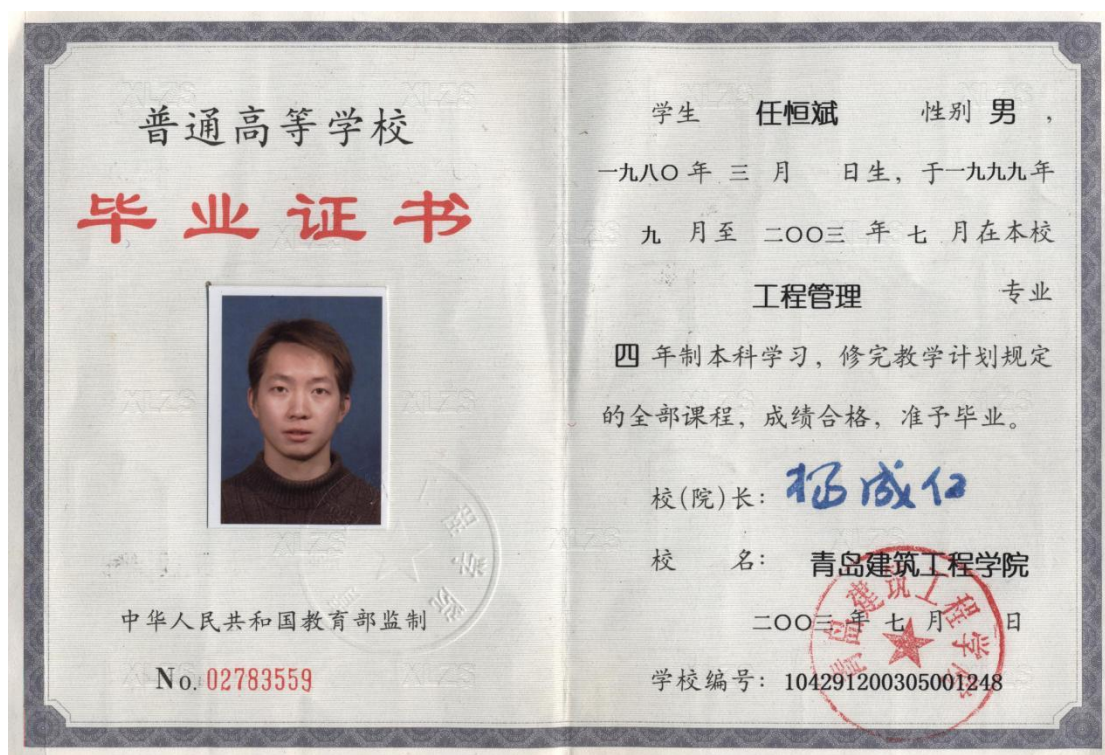 普通高等学校
毕业证书
中华人民共和国教育部监制
No. 02783559
学生 任恒斌 性别 男 ,
一九八〇年 三 月 日生, 于一九九九年
九 月至 二〇〇三 年 七 月在本校
工程管理 专业
四 年制本科学习, 修完教学计划规定
的全部课程, 成绩合格, 准予毕业。
校(院)长: 杨成仁
校 名: 青岛建筑工程学院
二〇〇三年 七 月 日
学校编号: 104291200305001248
青岛建筑工程学院
XLZS